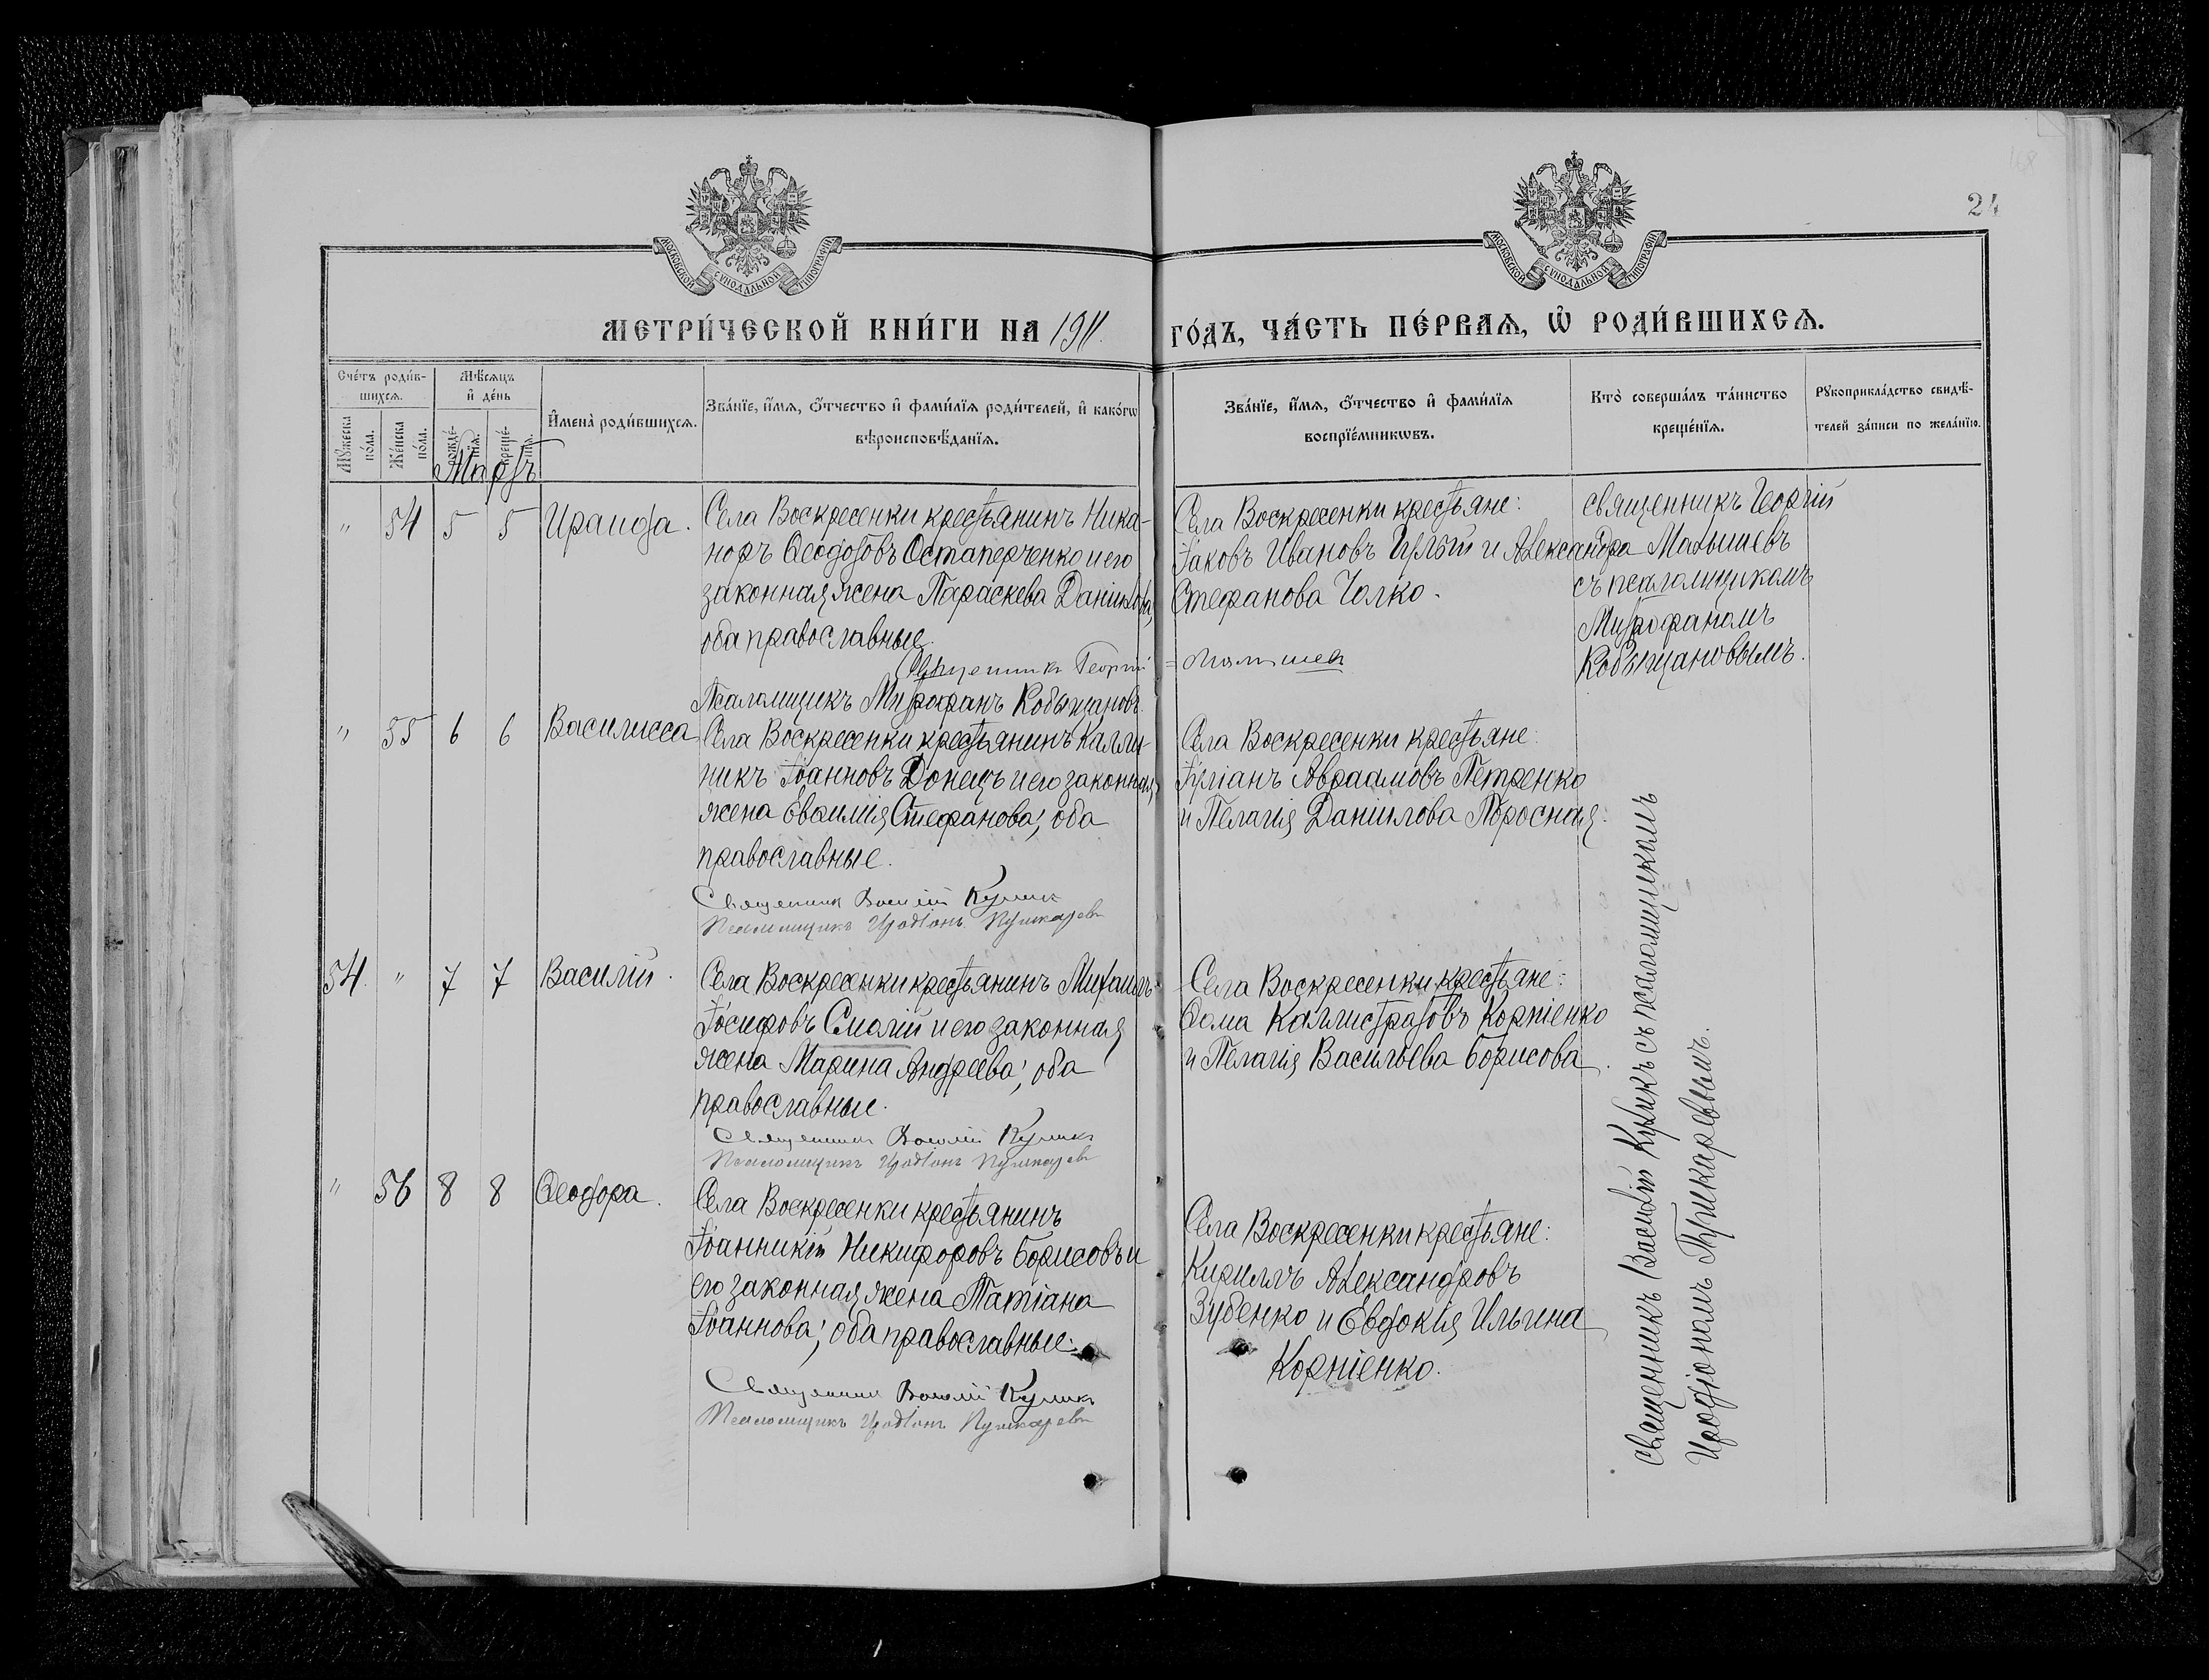 24
МОСКОВСКОЙ СѴНОДАЛЬНОЙ ТИПОГРАФІИ
МОСКОВСКОЙ СѴНОДАЛЬНОЙ ТИПОГРАФІИ
МЕТРИ́ЧЕСКОЙ КНИ́ГИ НА 1911 ГО́ДЪ, ЧА́СТЬ ПЕ́РВАѦ, Ѡ҆ РОДИ́ВШИХСѦ.
Сче́тъ роди́в-
шихсѧ.
Мꙋ́жеска по́ла.
Же́нска по́ла.
Мѣ́сѧцъ
и҆ де́нь
рожде́-
нїѧ.
креще́-
нїѧ.
И҆мена̀ роди́вшихсѧ.
Зва́нїе, и҆́мѧ, ѻ҆́тчество и҆ фами́лїѧ роди́телей, и҆ како́гѡ
вѣроисповѣ́данїѧ.
Зва́нїе, и҆́мѧ, ѻ҆́тчество и҆ фами́лїѧ
воспрїе́мникѡвъ.
Кто̀ соверша́лъ та́инство
креще́нїѧ.
Рꙋкоприкла́дство свидѣ́-
телей за́писи по жела́нїю.
Мартъ
" 54 5 5 Ираида.
Села Воскресенки крестьянинъ Ника-
норъ Ѳеодотовъ Остаперченко и его
законная жена Параскева Даніилова,
оба православные.
Священникъ Георгій Малышев
Псаломщикъ Митрофанъ Кобыщановъ
Села Воскресенки крестьяне:
Іаковъ Ивановъ и Александра
Стефанова Чалко.
священникъ Георгій
Малышевъ
съ псаломщикомъ
Митрофаномъ
Кобыщановымъ.
" 55 6 6 Василисса
Села Воскресенки крестьянинъ Калли-
никъ Іоанновъ Донецъ и его законная
жена Евѳимія Стефанова; оба
православные.
Священник Василій Кулик
Псаломщикъ Иродіонъ Пушкаревъ
Села Воскресенки крестьяне:
Іуліанъ Авраамовъ Петренко
и Пелагія Даніилова Поросная.
54. " 7 7 Василій.
Села Воскресенки крестьянинъ Михаилъ
Іосифовъ Смагій и его законная
жена Марина Андреева; оба
православные.
Священникъ Василій Куликъ
Псаломщикъ Иродіонъ Пушкаревъ
Села Воскресенки крестьяне:
Ѳома Каллистратовъ Корніенко
и Пелагія Васильева Борисова.
" 56 8 8 Ѳеодора.
Села Воскресенки крестьянинъ
Іоанникій Никифоровъ Борисовъ и
его законная жена Татіана
Іоаннова; оба православные.
Священник Василій Куликъ
Псаломщикъ Иродіонъ Пушкаревъ
Села Воскресенки крестьяне:
Кириллъ Александровъ
Зубенко и Евдокія Ильина
Корніенко.
священникъ Василій Куликъ съ псаломщикомъ
Иродіономъ Пушкаревымъ.